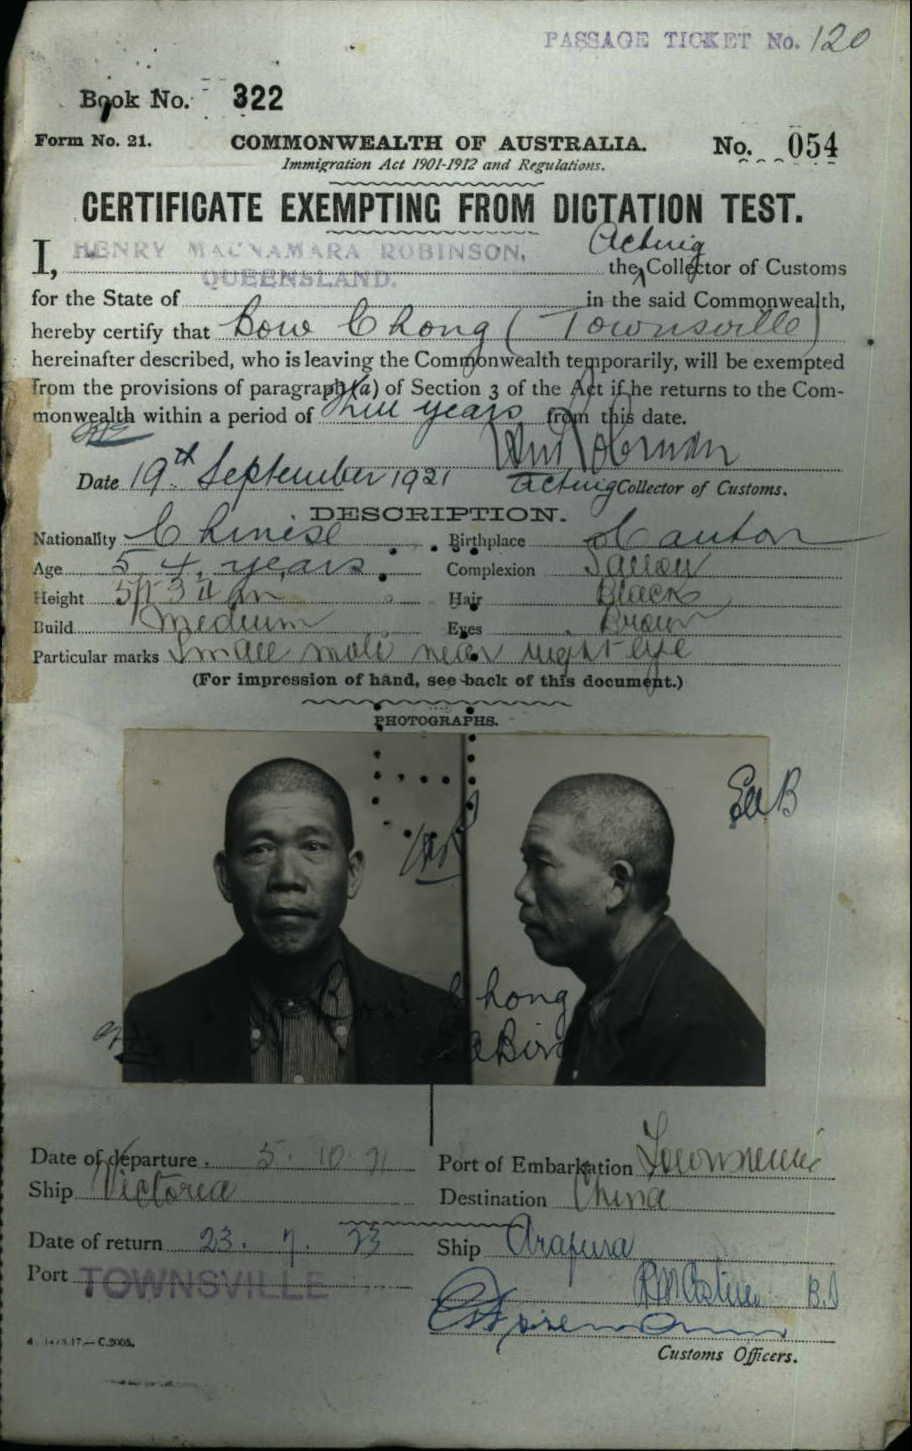 PASSAGE TICKET No. 120
Book No. 322
Form No. 21. COMMONWEALTH OF AUSTRALIA. No. 054
Immigration Act 1901-1912 and Regulations.
CERTIFICATE EXEMPTING FROM DICTATION TEST.
I, HENRY MACNAMARA ROBINSON, the Acting Collector of Customs
QUEENSLAND.
for the State of in the said Commonwealth,
hereby certify that Bow Chong (Townsville)
hereinafter described, who is leaving the Commonwealth temporarily, will be exempted
from the provisions of paragraph (a) of Section 3 of the Act if he returns to the Com-
monwealth within a period of years from this date.
Date 19th September 1921 Acting Collector of Customs.
DESCRIPTION.
Nationality Chinese Birthplace Canton
Age 54 years Complexion Sallow
Height 5ft 3 in Hair Black
Build Medium Eyes Brown
Particular marks Small mole near right eye
(For impression of hand, see back of this document.)
PHOTOGRAPHS.
Bow Chong
Date of departure 5.10.21 Port of Embarkation Townsville
Ship Victoria Destination China
Date of return 23.7.23 Ship Arafura
Port TOWNSVILLE
Customs Officers.